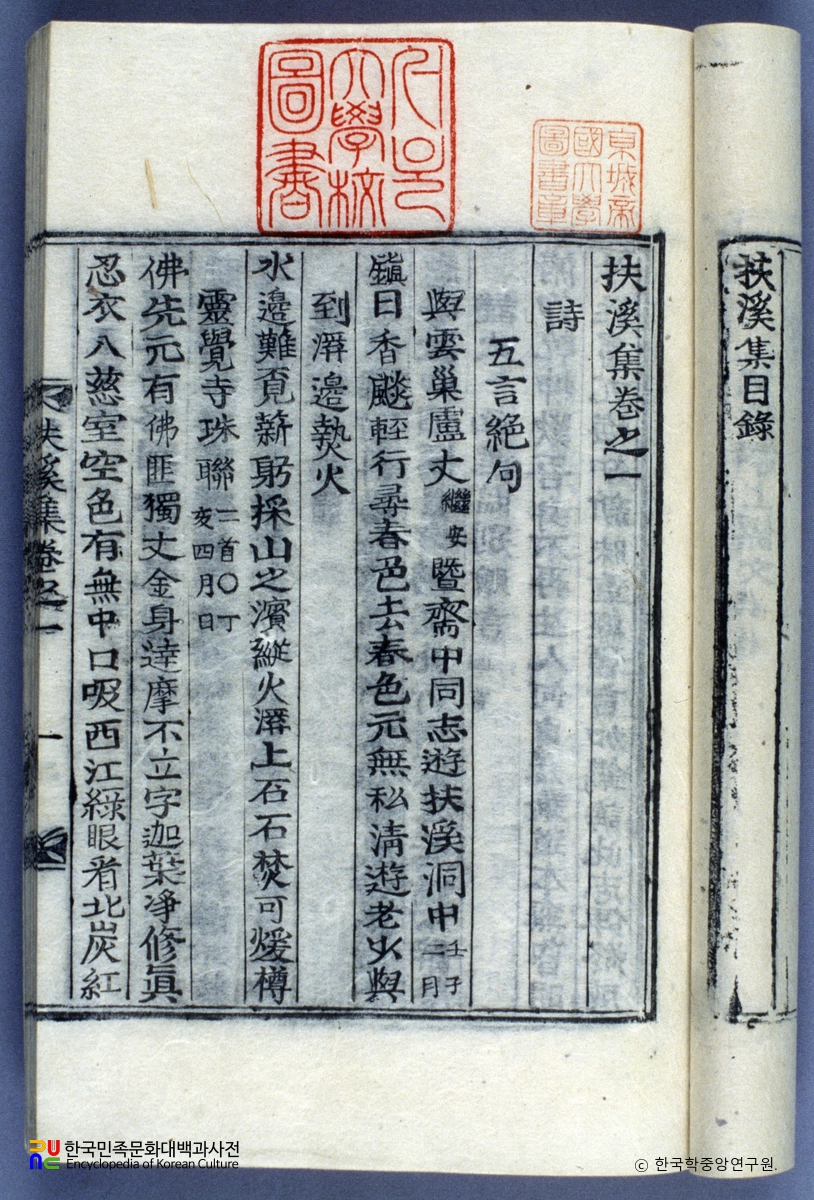 扶溪集目錄
京城帝
國大學
圖書章
서울
大學校
圖書
扶溪集卷之一
詩
五言絶句
與雲巢盧丈繼安曁齋中同志遊扶溪洞中壬子二月
鎭日香飈輕行尋春邑去春色元無私淸遊老少與
到邊爇火
水邊難覓薪躬採山之濱縱火上石石焚可煖樽
靈覺寺珠聯二首〇丁亥四月日
佛先元有佛匪獨丈金身達摩不立字迦葉淨修眞
忍衣入慈室空色有無中口吸西江綠眼看北炭紅
扶溪集卷之一
一
한국민족문화대백과사전
Encyclopedia of Korean Culture
ⓒ 한국학중앙연구원.